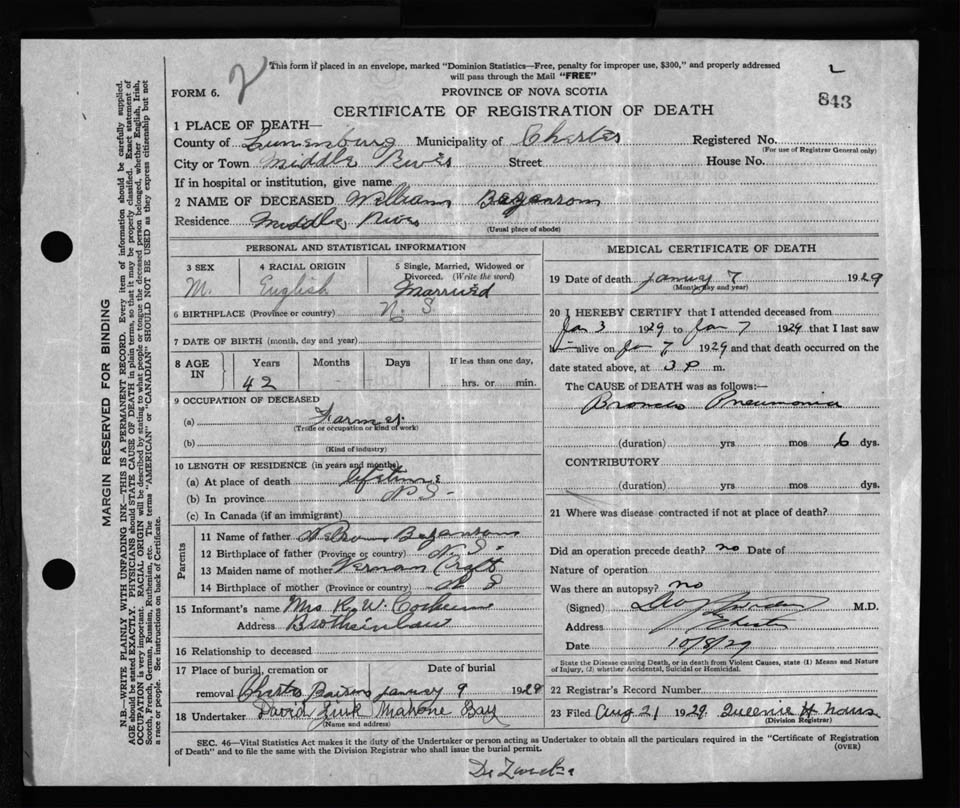 2
This form if placed in an envelope, marked "Dominion Statistics—Free, penalty for improper use, $300," and properly addressed
will pass through the Mail "FREE"
FORM 6.
PROVINCE OF NOVA SCOTIA
843
CERTIFICATE OF REGISTRATION OF DEATH
1 PLACE OF DEATH—
County of Lunenburg Municipality of Chester Registered No.
(For use of Registrar General only)
City or Town Middle River Street House No.
If in hospital or institution, give name
2 NAME OF DECEASED William
Residence Middle River
(Usual place of abode)
PERSONAL AND STATISTICAL INFORMATION
3 SEX
M.
4 RACIAL ORIGIN
English
5 Single, Married, Widowed or
Divorced. (Write the word)
Married
6 BIRTHPLACE (Province or country) N. S.
7 DATE OF BIRTH (month, day and year)
8 AGE
IN
Years Months Days If less than one day,
42 hrs. or min.
9 OCCUPATION OF DECEASED
(a) Farmer
(Trade or occupation or kind of work)
(b)
(Kind of industry)
10 LENGTH OF RESIDENCE (in years and months)
(a) At place of death lifetime
(b) In province N S
(c) In Canada (if an immigrant)
Parents
11 Name of father
12 Birthplace of father (Province or country) N. S.
13 Maiden name of mother
14 Birthplace of mother (Province or country) N S
15 Informant's name Mrs R. W.
Address
16 Relationship to deceased
17 Place of burial, cremation or Date of burial
removal January 9 1929
18 Undertaker David Mahone Bay
(Name and address)
MEDICAL CERTIFICATE OF DEATH
19 Date of death January 7 1929
(Month, day and year)
20 I HEREBY CERTIFY that I attended deceased from
Jan 3 1929 to Jan 7 1929 that I last saw
alive on Jan 7 1929 and that death occurred on the
date stated above, at 3 P m.
The CAUSE of DEATH was as follows:—
Broncho Pneumonia
(duration) yrs mos 6 dys.
CONTRIBUTORY
(duration) yrs mos dys.
21 Where was disease contracted if not at place of death?
Did an operation precede death? no Date of
Nature of operation
Was there an autopsy? no
(Signed) M.D.
Address Chester
Date 10/8/29
State the Disease causing Death, or in death from Violent Causes, state (1) Means and Nature
of Injury, (2) whether Accidental, Suicidal or Homicidal.
22 Registrar's Record Number
23 Filed Aug 21 1929. Queenie H
(Division Registrar)
SEC. 46—Vital Statistics Act makes it the duty of the Undertaker or person acting as Undertaker to obtain all the particulars required in the "Certificate of Registration
of Death" and to file the same with the Division Registrar who shall issue the burial permit.
(OVER)
MARGIN RESERVED FOR BINDING
N.B.—WRITE PLAINLY WITH UNFADING INK—THIS IS A PERMANENT RECORD. Every item of information should be carefully supplied.
AGE should be stated EXACTLY. PHYSICIANS should STATE CAUSE OF DEATH in plain terms, so that it may be properly classified. Exact statement of
OCCUPATION is very important. RACIAL ORIGIN will be described by stating to what people or tongue the deceased person belonged, whether English, Irish,
Scotch, French, German, Russian, Ruthenian, etc. The terms "AMERICAN" or "CANADIAN" SHOULD NOT BE USED as they express citizenship but not
a race or people. See instructions on back of Certificate.